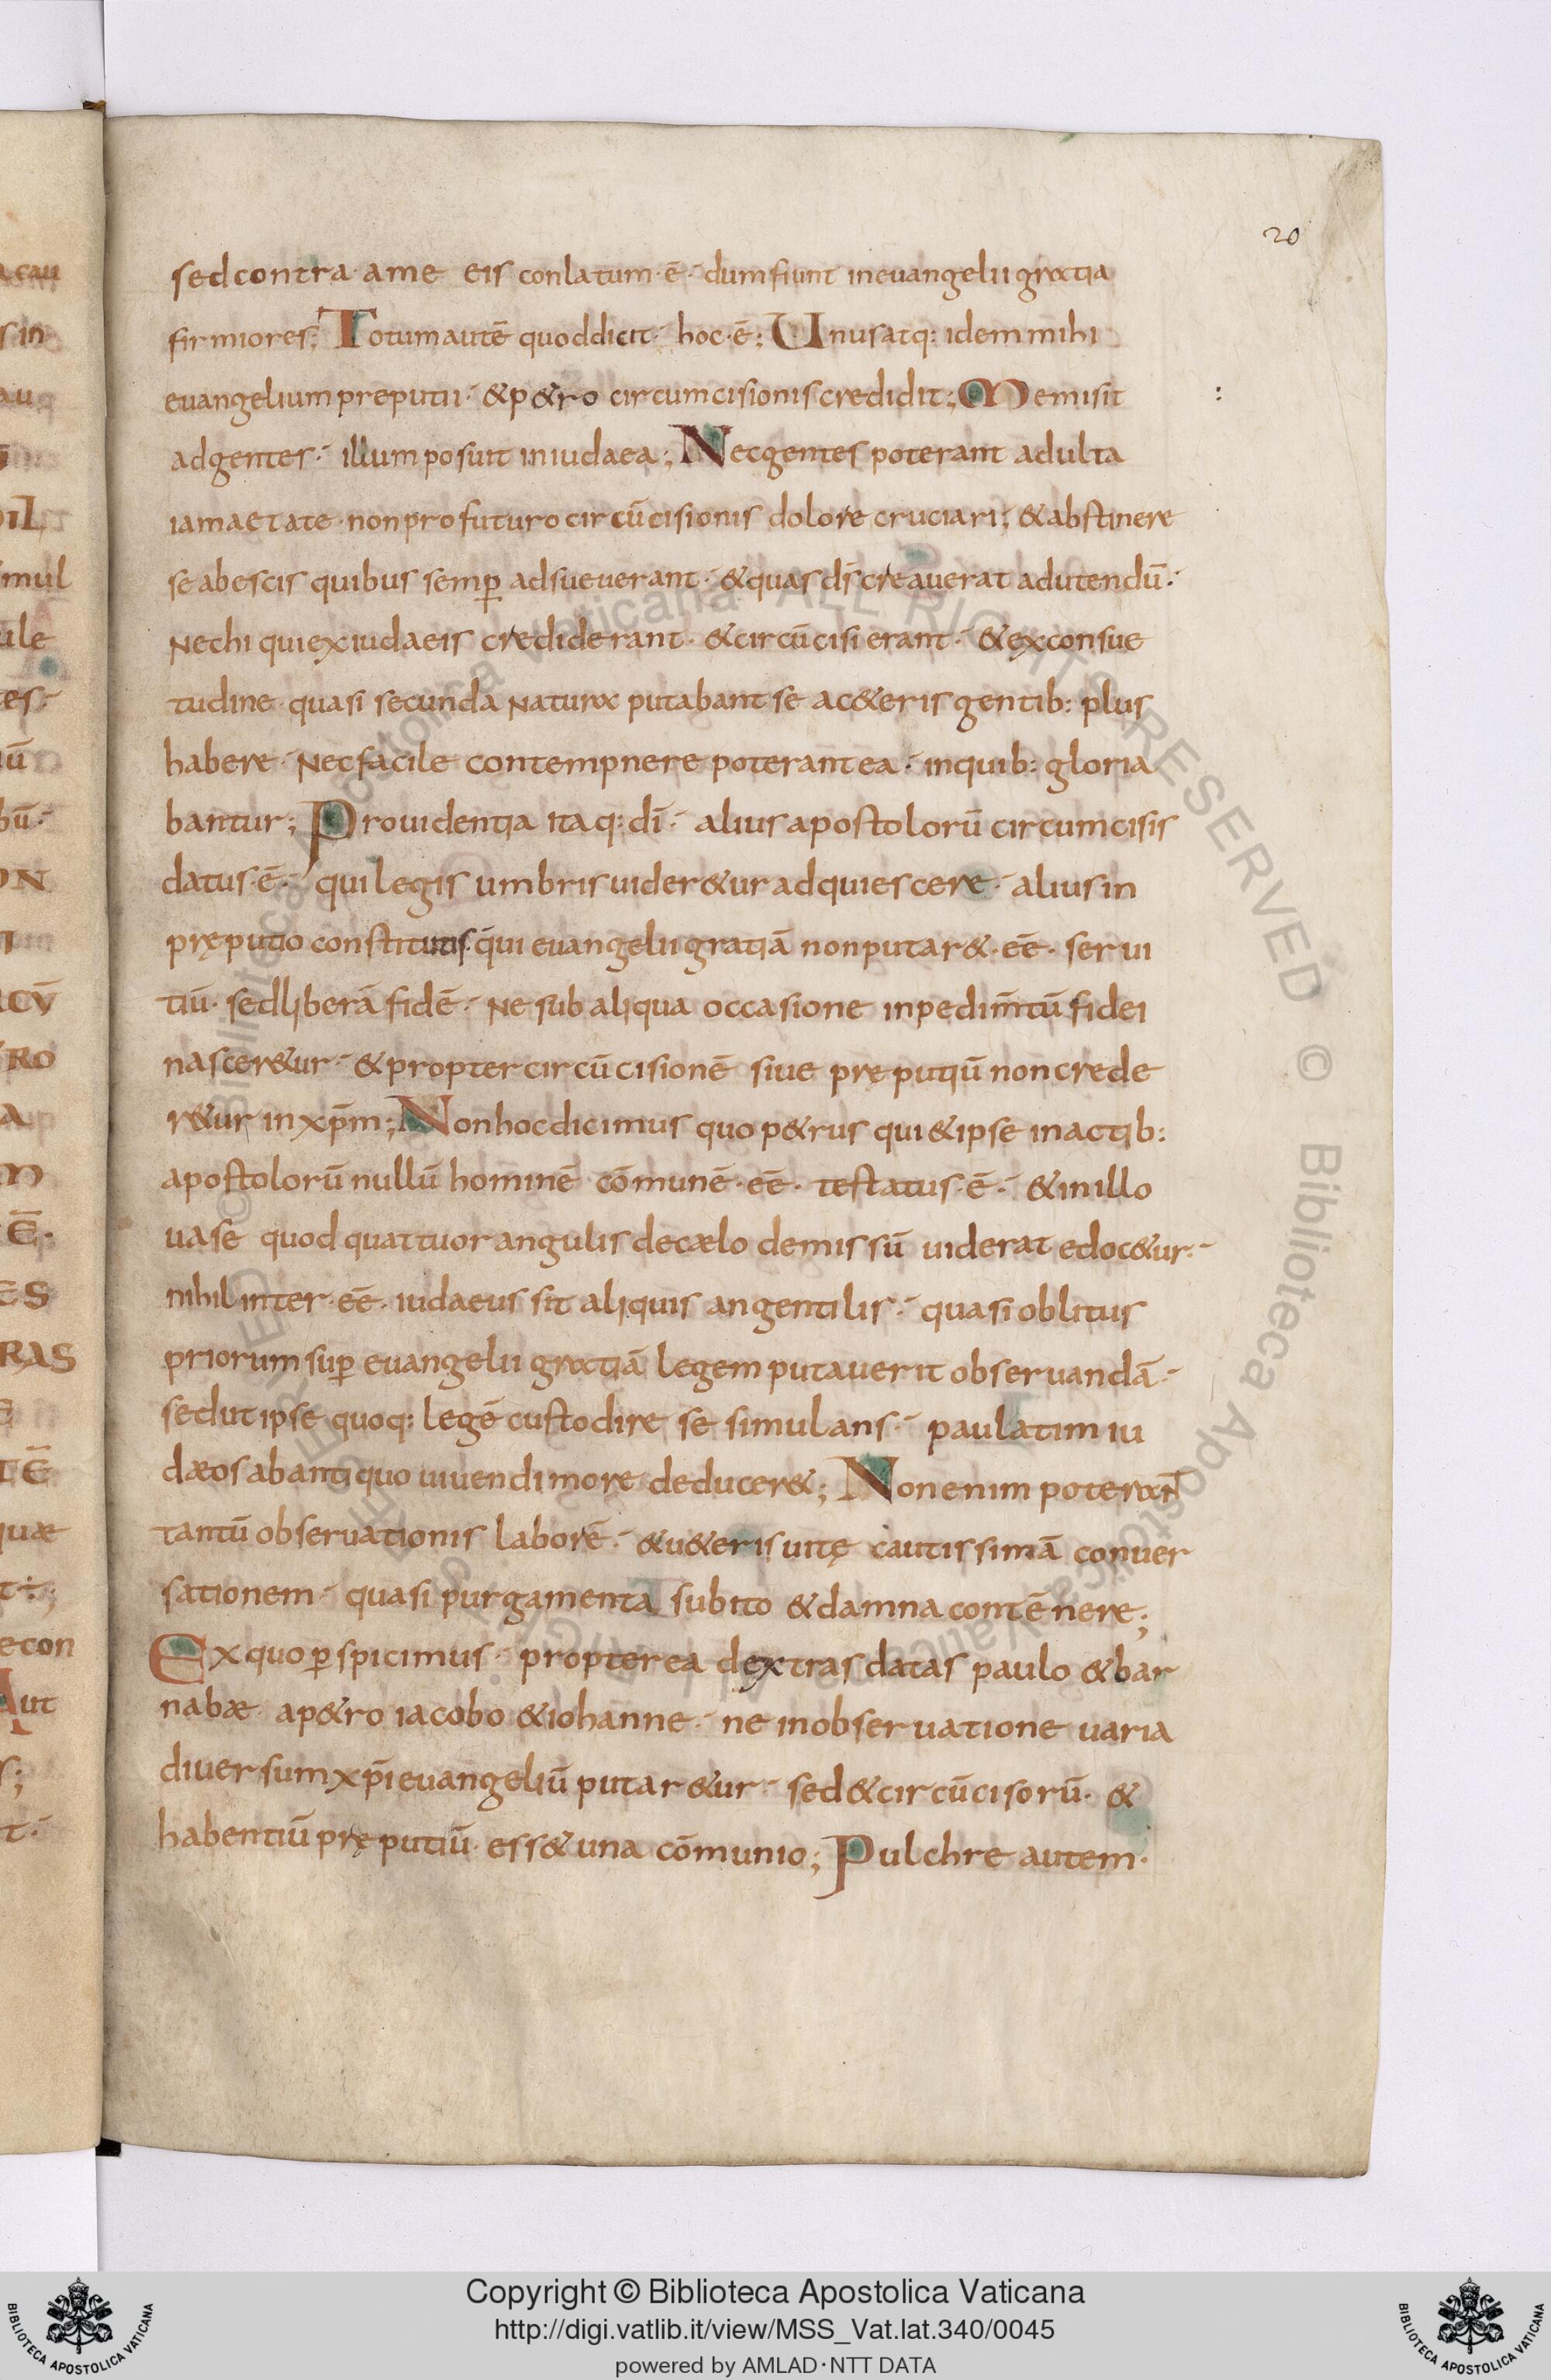 20
sed contra a me eis conlatum·ē· dum fiunt in euangelii gratia
firmiores; Totum autē quod dicit· hoc·ē; Unus atq: idem mihi
euangelium preputii· & p&ro circumcisionis credidit; Me misit
ad gentes· illum posuit in iudaea; Nec gentes poterant adulta
iam aetate· non profuturo circūcisionis dolore cruciari; & abstinere
se ab escis quibus semꝑ adsueuerant· & quas d̄s creauerat ad utendū·
Nec hi qui ex iudaeis crediderant· & circūcisi erant· & ex consue
tudine quasi secunda natura putabant se ac&eris gentib: plus
habere· Nec facile contempnere poterant ea· in quib: gloria
bantur; Prouidentia itaq: dī· alius apostolorū circumcisis
datus·ē· qui legis umbris uider&ur adquiescere· alius in
pręputio constitutis· qui euangelii gratiā non putar&·eē· serui
tiū· sed liberā fidē· Ne sub aliqua occasione inpedim̄tū fidei
nascer&ur· & propter circūcisionē siue pręputiū non crede
r&ur in xp̄m; Non hoc dicimus quo p&rus qui & ipse in actib:
apostolorū nullū hominē cōmunē·eē· testatus·ē· & in illo
uase quod quattuor angulis de cælo demissū uiderat edoc&ur·
nihil inter·eē· iudaeus sit aliquis an gentilis· quasi oblitus
priorum suꝑ euangelii gratiā legem putauerit obseruandā·
sed ut ipse quoq: legē custodire se simulans· paulatim iu
dæos ab antiquo uiuendi more deducer&; Non enim poteran̄
tantū obseruationis laborē· & u&eris uitę cautissimā conuer
sationem· quasi purgamenta subito & damna contēnere;
Ex quo ꝑspicimus· propterea dextras datas paulo & bar
nabæ a p&ro iacobo & iohanne· ne in obseruatione uaria
diuersum xp̄i euangeliū putar&ur· sed & circūcisorū· &
habentiū pręputiū· ess& una cōmunio; Pulchre autem·
Copyright © Biblioteca Apostolica Vaticana
http://digi.vatlib.it/view/MSS_Vat.lat.340/0045
powered by AMLAD·NTT DATA